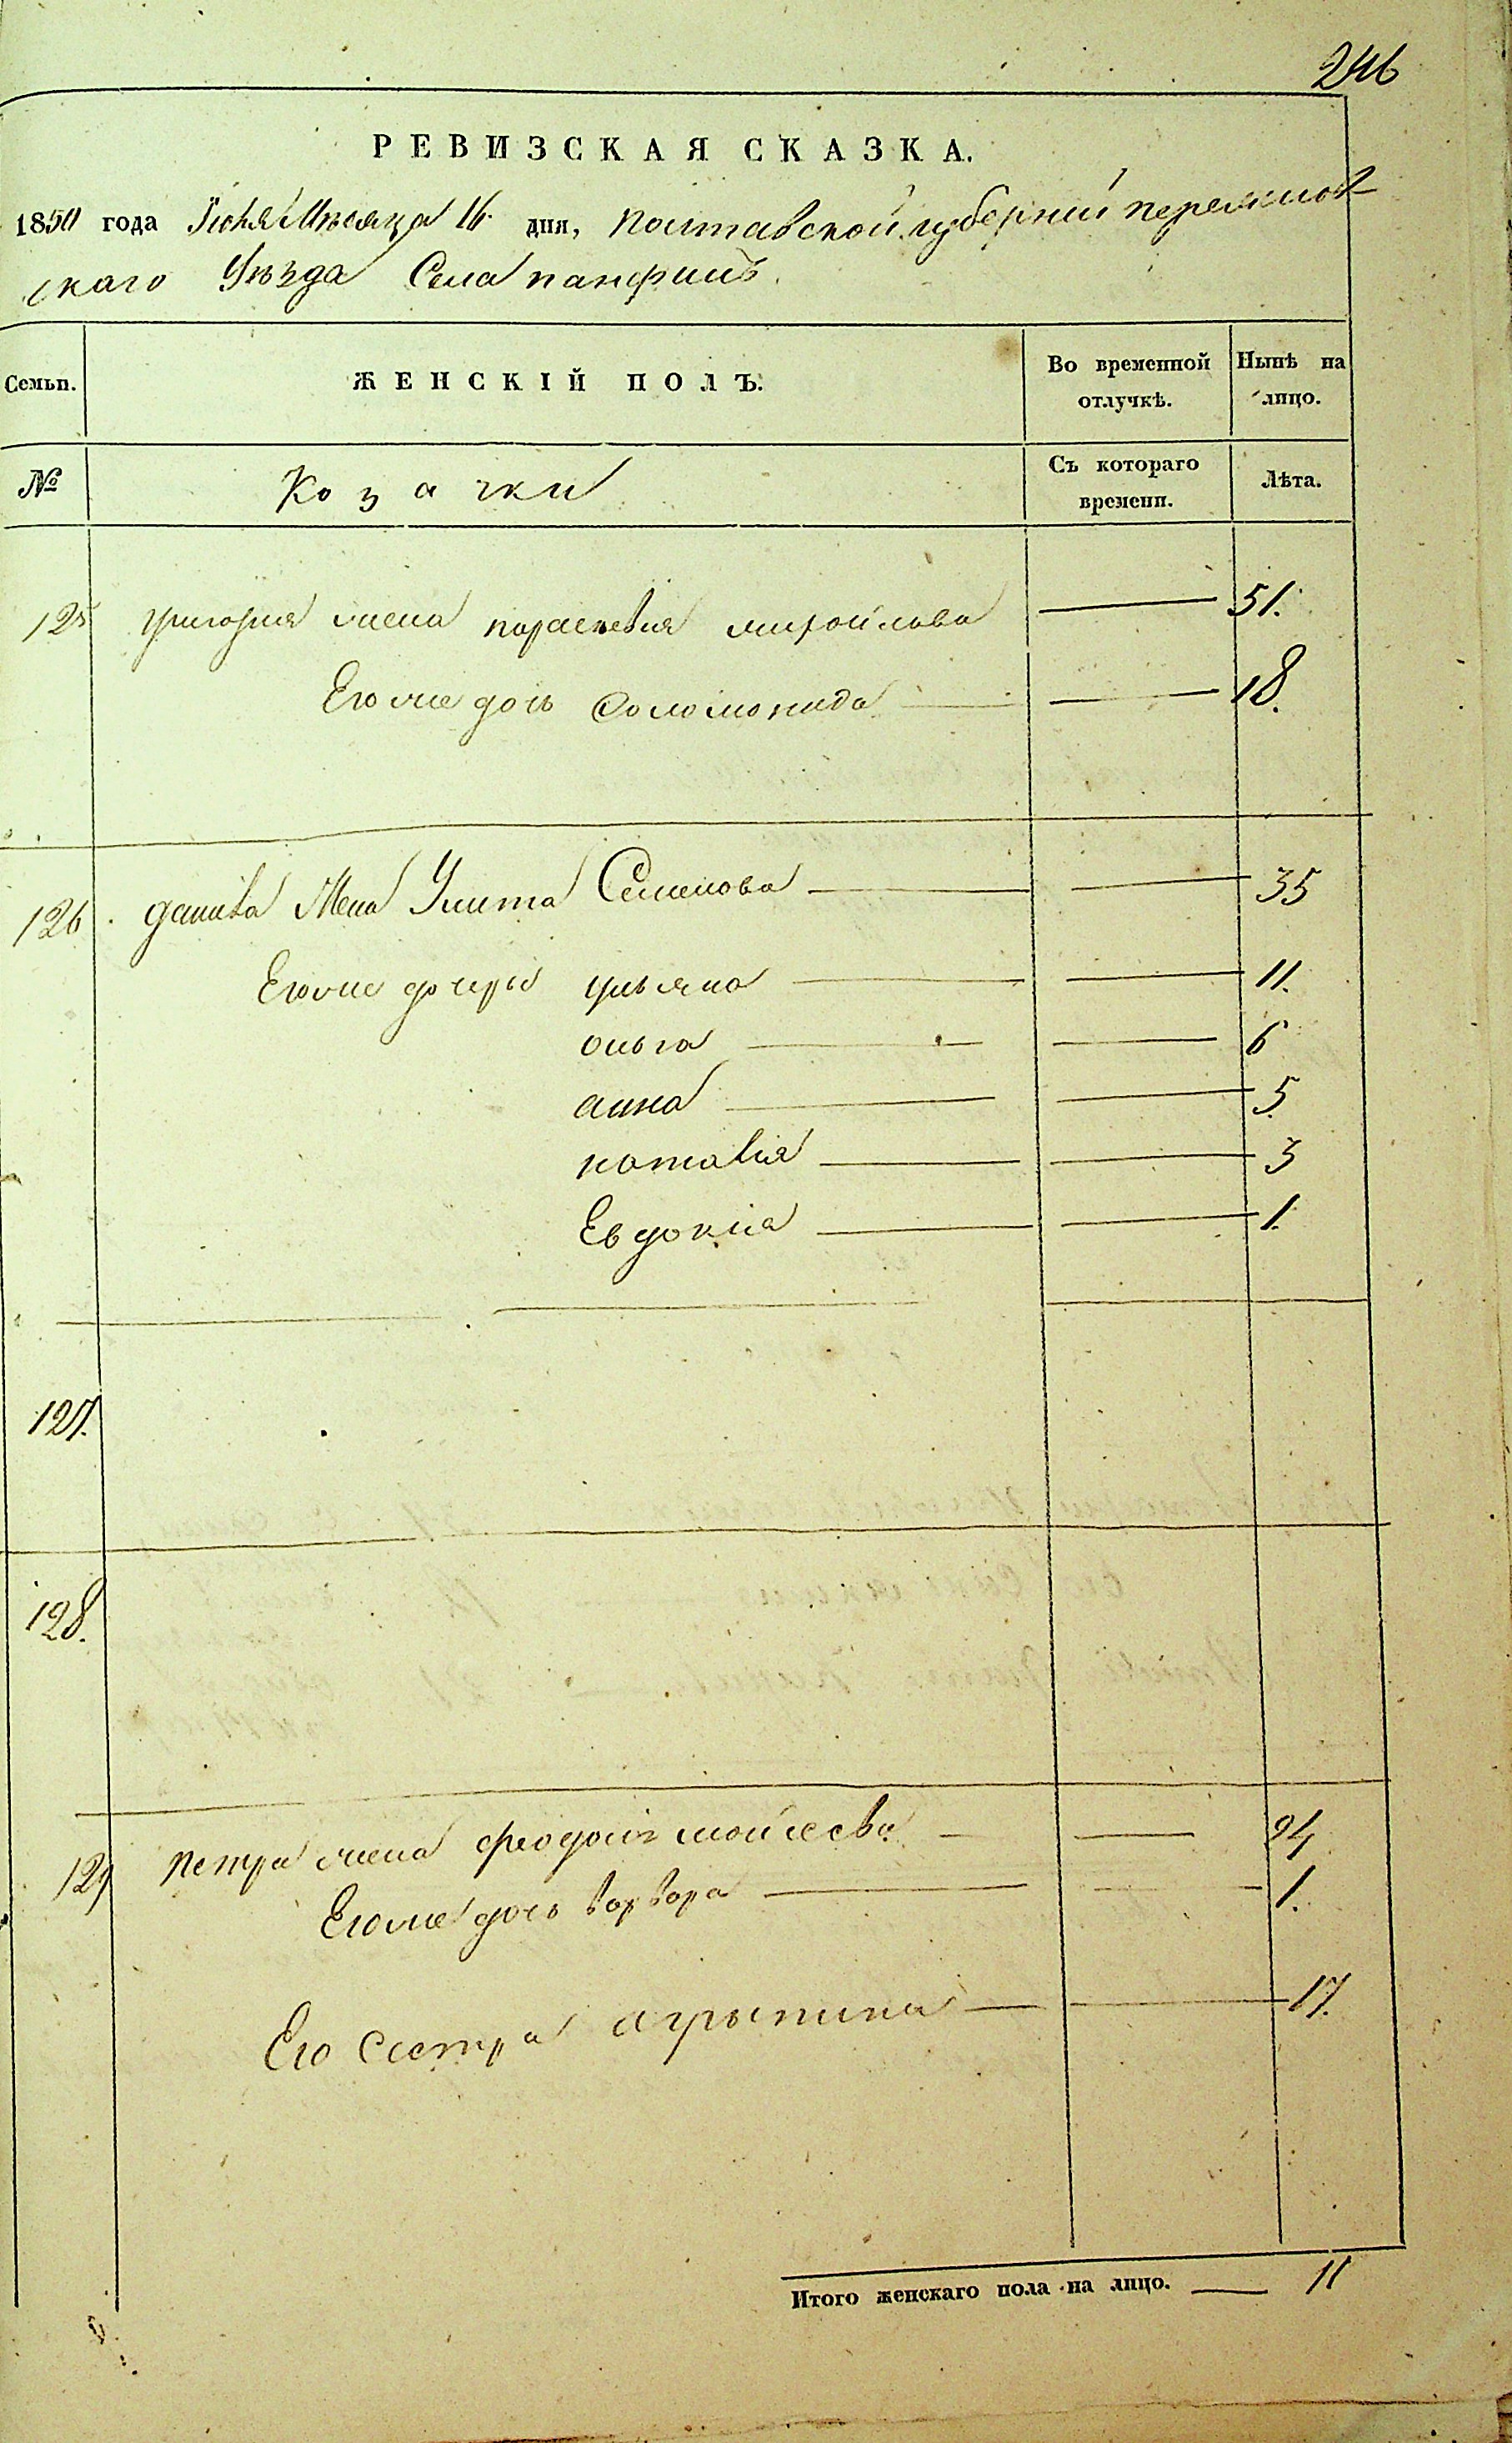 246
РЕВИЗСКАЯ СКАЗКА.
1850 года Июля Месяца 16 дня, Полтавской губерній
скаго Уѣзда Села панфилъ
Семьи. ЖЕНСКІЙ ПОЛЪ. Во временной отлучкѣ. Нынѣ на лицо.
№ Козачки Съ котораго времени. Лѣта.
125 григория жена параскевия 51.
Его же дочь Соломонида 18.
126 данила Жена Улита Семенова 35
Его же дочери ульяна 11.
ольга 6
анна 5
наталия 3
Евдокия 1.
127.
128.
129 петра жена мойсеева 24
Его же дочь варвара 1.
Его сестра агрыпина 17.
Итого женскаго пола на лицо. 11